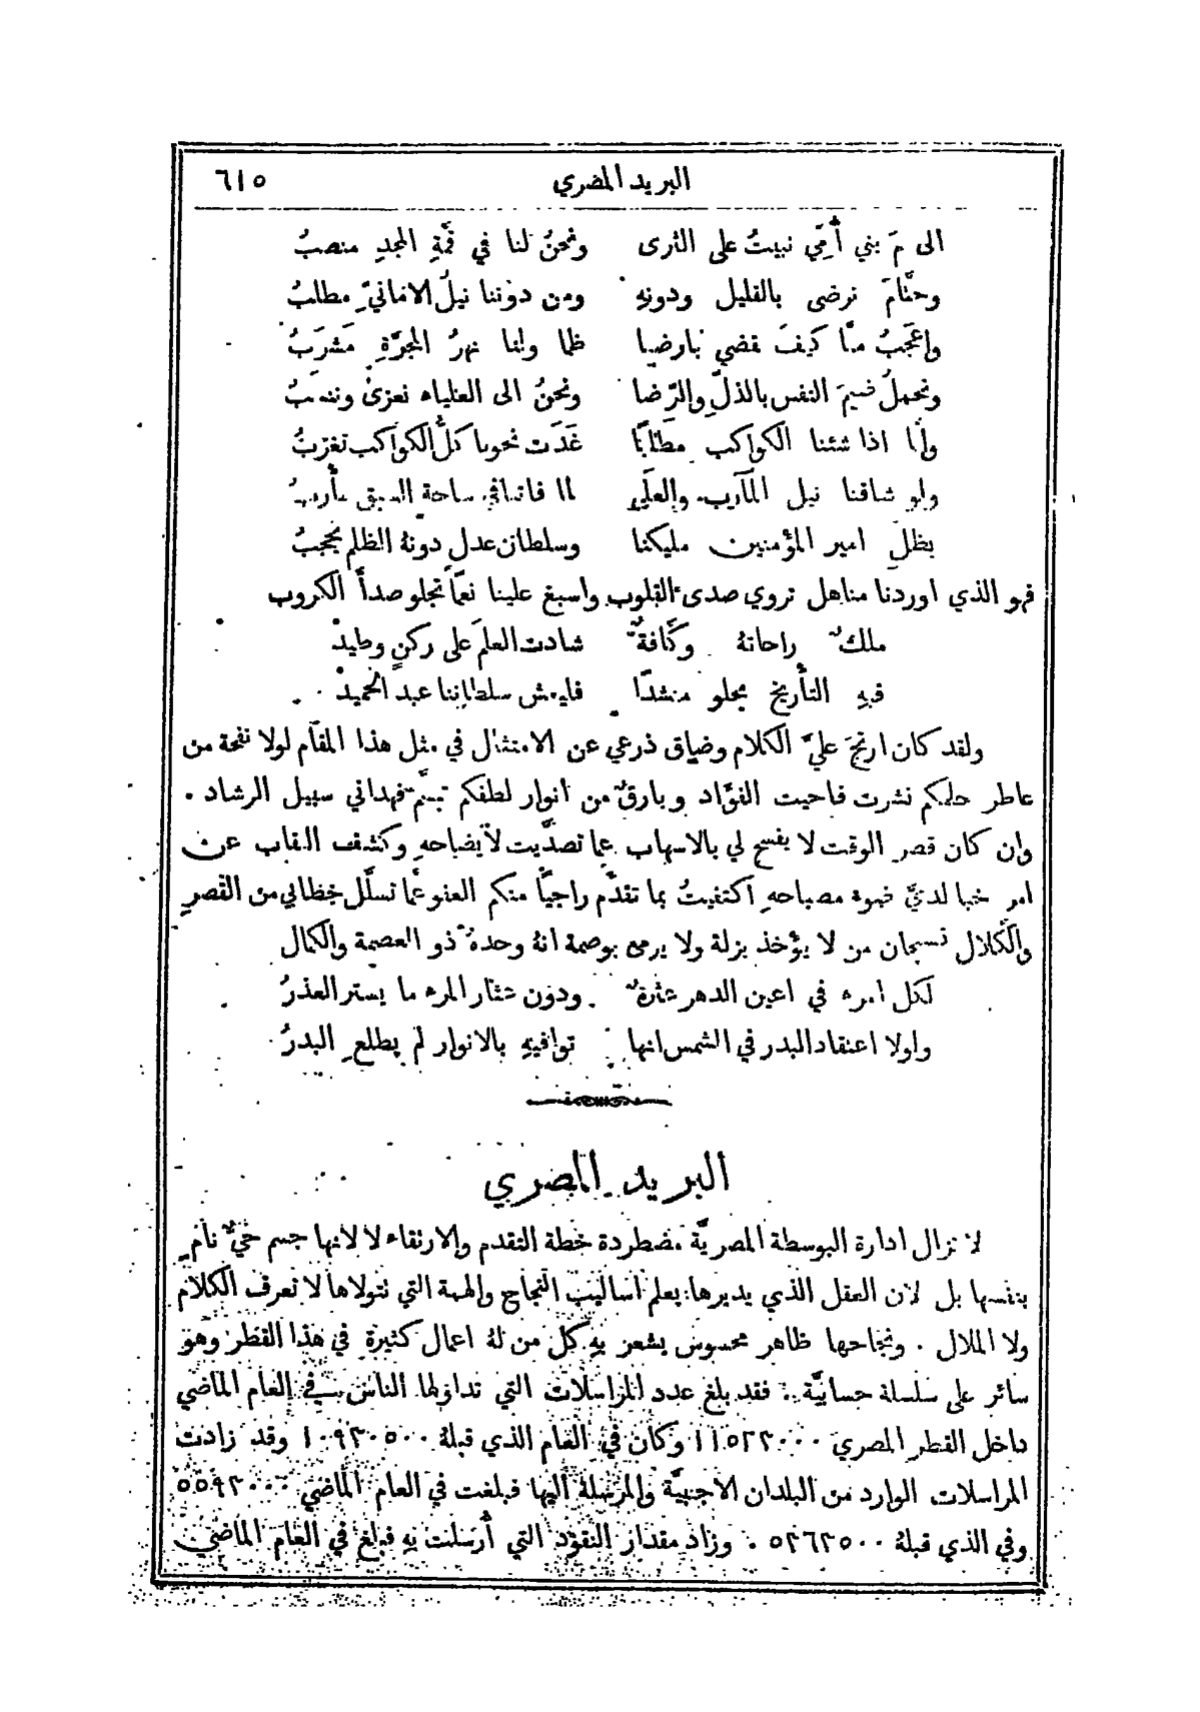 البريد المصري ٦١٥
الى مَ بني أُمّي نبيتُ على الثرى ونحنُ لنا في قمَّةِ المجدِ منصبُ
وحتَّامَ نرضى بالقليل ودونهِ ومن دوننا نيلُ الامانيّ مطلبُ
واعجَبُ منَّا كيفَ نقضي بارضنا ظما ولنا نهرُ المجرَّةِ مَشرَبُ
ونحملُ ضيمَ النفس بالذلّ والرّضا ونحنُ الى العلياء نعزى وننسبُ
وانَّا اذا شئنا الكواكب مطلبًا غَدَت نحونا كلُّ الكواكب تغربُ
ولو شاقنا نيل المآرب والعلَى لما فاتنا في ساحة السبق مأربُ
بظلّ امير المؤمنين مليكنا وسلطان عدل دونهُ الظلم يحجبُ
فهو الذي اوردنا مناهل تروي صدى القلوب واسبغ علينا نعمًا تجلو صدأَ الكروب
ملكٌ راحاتهُ وكَّافةٌ شادت العلمَ على ركنٍ وطيدْ
فيهِ التأريخ يجلو منشدًا فليعش سلطاننا عبد الحميدْ .
ولقد كان ارتجَ عليَّ الكلام وضاق ذرعي عن الامتثال في مثل هذا المقام لولا نفحة من
عاطر حلمكم نشرت فاحيت الفؤَاد وبارقٌ من انوار لطفكم تبسَّم فهداني سبيل الرشاد .
وان كان قصر الوقت لا يفسح لي بالاسهاب عما تصدَّيت لايضاحهِ وكشف النقاب عن
امر خبا لديَّ ضوء مصباحهِ اكتفيتُ بما تقدَّم راجيًا منكم العفو عمَّا تسلَّل خطابي من القصر
والكلال فسبحان من لا يؤخذ بزلة ولا يرمى بوصمة انهُ وحدهُ ذو العصمة والكمال
لكل امرء في اعين الدهر عثرةٌ ودون عثار المرء ما يستر العذرُ
ولولا اعتقاد البدر في الشمس انها توافيهِ بالانوار لم يطلع البدرُ
البريد المصري
لا تزال ادارة البوسطة المصريَّة مضطردة خطة التقدم والارتقاء لا لانها جسم حيٌّ نامٍ
بنفسها بل لان العقل الذي يديرها يعلم اساليب النجاح والهمة التي تتولاها لا تعرف الكلام
ولا الملال . ونجاحها ظاهر محسوس يشعر بهِ كل من لهُ اعمال كثيرة في هذا القطر وهو
سائر على سلسلة حسابيَّة . فقد بلغ عدد المراسلات التي تداولها الناس في العام الماضي
داخل القطر المصري ١١٥٢٢٠٠٠ وكان في العام الذي قبلهُ ١٠٩٣٠٥٠٠ وقد زادت
المراسلات الوارد من البلدان الاجنبيَّة والمرسلة اليها فبلغت في العام الماضي ٥٥٩٣٠٠٠
وفي الذي قبلهُ ٥٢٦٢٥٠٠ . وزاد مقدار النقود التي أُرسلت بهِ فبلغ في العام الماضي